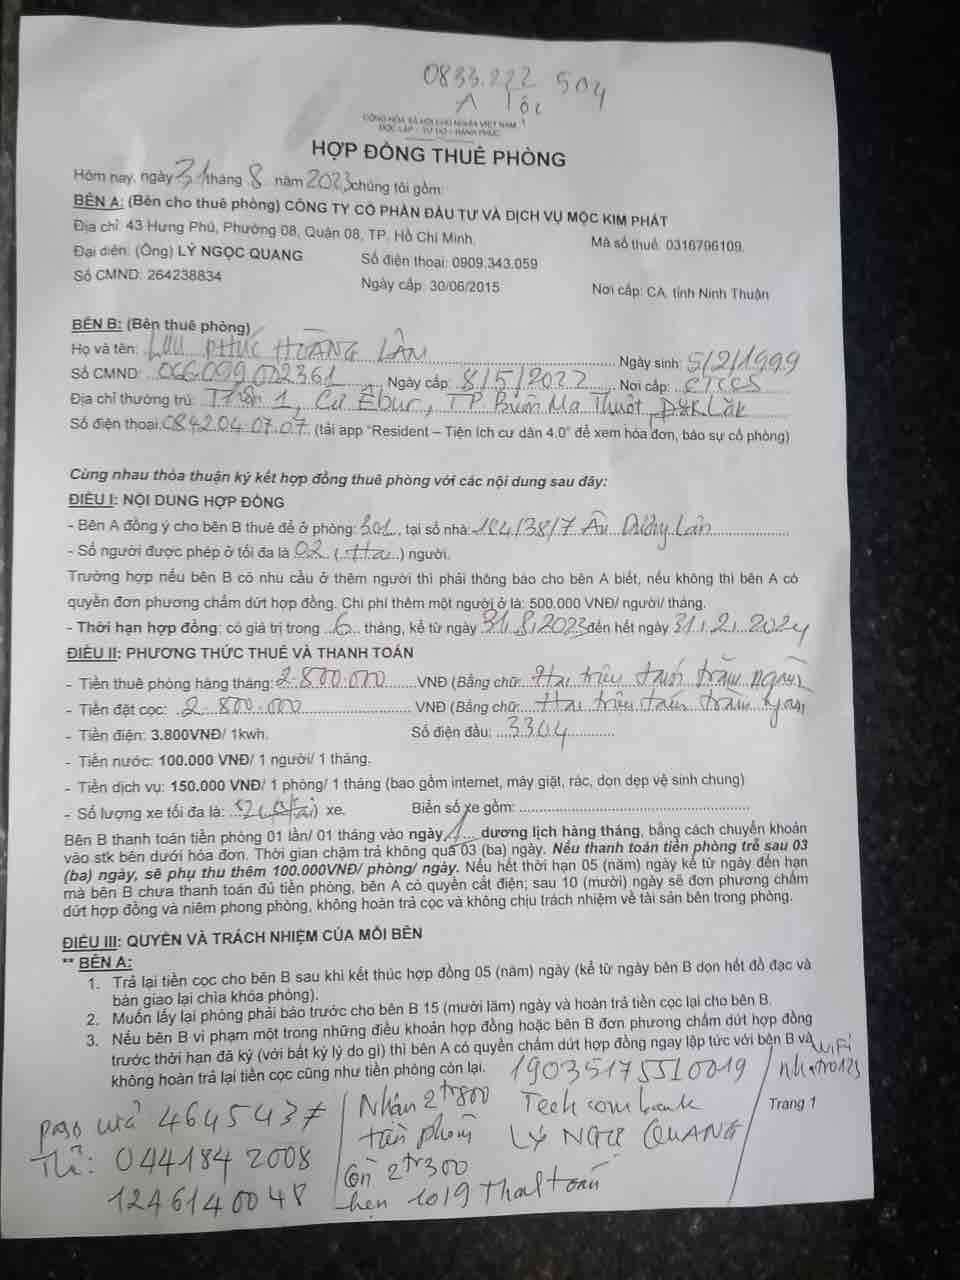 0833.222 504
A Lộc
CỘNG HÒA XÃ HỘI CHỦ NGHĨA VIỆT NAM
ĐỘC LẬP - TỰ DO - HẠNH PHÚC
HỢP ĐỒNG THUÊ PHÒNG
Hôm nay, ngày 31 tháng 8 năm 2023 chúng tôi gồm:
BÊN A: (Bên cho thuê phòng) CÔNG TY CỔ PHẦN ĐẦU TƯ VÀ DỊCH VỤ MỘC KIM PHÁT
Địa chỉ: 43 Hưng Phú, Phường 08, Quận 08, TP. Hồ Chí Minh. Mã số thuế: 0316796109.
Đại diện: (Ông) LÝ NGỌC QUANG Số điện thoại: 0909.343.059
Số CMND: 264238834 Ngày cấp: 30/06/2015 Nơi cấp: CA. tỉnh Ninh Thuận
BÊN B: (Bên thuê phòng)
Họ và tên: LƯU PHÚC HOÀNG LÂM Ngày sinh: 5/2/1999
Số CMND: 066099002361 Ngày cấp: 8/5/2022 Nơi cấp: CTCCS
Địa chỉ thường trú: Thôn 1, Cư Êbur, TP. Buôn Ma Thuột, Đăk Lăk
Số điện thoại: 0842.04.07.07 (tải app "Resident – Tiện ích cư dân 4.0" để xem hóa đơn, báo sự cố phòng)
Cùng nhau thỏa thuận ký kết hợp đồng thuê phòng với các nội dung sau đây:
ĐIỀU I: NỘI DUNG HỢP ĐỒNG
- Bên A đồng ý cho bên B thuê để ở phòng: 301, tại số nhà: 184/38/7 Âu Dương Lân
- Số người được phép ở tối đa là 02 (Hai) người.
Trường hợp nếu bên B có nhu cầu ở thêm người thì phải thông báo cho bên A biết, nếu không thì bên A có
quyền đơn phương chấm dứt hợp đồng. Chi phí thêm một người ở là: 500.000 VNĐ/ người/ tháng.
- Thời hạn hợp đồng: có giá trị trong 6 tháng, kể từ ngày 31.8.2023 đến hết ngày 31.2.2024
ĐIỀU II: PHƯƠNG THỨC THUÊ VÀ THANH TOÁN
- Tiền thuê phòng hàng tháng: 2.800.000 VNĐ (Bằng chữ: Hai triệu tám trăm ngàn
- Tiền đặt cọc: 2.800.000 VNĐ (Bằng chữ: Hai triệu tám trăm ngàn
- Tiền điện: 3.800VNĐ/ 1kwh. Số điện đầu: 3304
- Tiền nước: 100.000 VNĐ/ 1 người/ 1 tháng.
- Tiền dịch vụ: 150.000 VNĐ/ 1 phòng/ 1 tháng (bao gồm internet, máy giặt, rác, dọn dẹp vệ sinh chung)
- Số lượng xe tối đa là: xe. Biển số xe gồm:
Bên B thanh toán tiền phòng 01 lần/ 01 tháng vào ngày 1 dương lịch hàng tháng, bằng cách chuyển khoản
vào stk bên dưới hóa đơn. Thời gian chậm trả không quá 03 (ba) ngày. Nếu thanh toán tiền phòng trễ sau 03
(ba) ngày, sẽ phụ thu thêm 100.000VNĐ/ phòng/ ngày. Nếu hết thời hạn 05 (năm) ngày kể từ ngày đến hạn
mà bên B chưa thanh toán đủ tiền phòng, bên A có quyền cắt điện; sau 10 (mười) ngày sẽ đơn phương chấm
dứt hợp đồng và niêm phong phòng, không hoàn trả cọc và không chịu trách nhiệm về tài sản bên trong phòng.
ĐIỀU III: QUYỀN VÀ TRÁCH NHIỆM CỦA MỖI BÊN
** BÊN A:
1. Trả lại tiền cọc cho bên B sau khi kết thúc hợp đồng 05 (năm) ngày (kể từ ngày bên B dọn hết đồ đạc và
bàn giao lại chìa khóa phòng).
2. Muốn lấy lại phòng phải báo trước cho bên B 15 (mười lăm) ngày và hoàn trả tiền cọc lại cho bên B.
3. Nếu bên B vi phạm một trong những điều khoản hợp đồng hoặc bên B đơn phương chấm dứt hợp đồng
trước thời hạn đã ký (với bất kỳ lý do gì) thì bên A có quyền chấm dứt hợp đồng ngay lập tức với bên B và
không hoàn trả lại tiền cọc cũng như tiền phòng còn lại.
19035175510019
Techcombank
LÝ NGỌC QUANG
WiFi
nhatro123
Trang 1
pass cửa 464543#
Thẻ: 0441842008
1246140048
Nhận 2tr800
tiền phòng
Còn 2tr300
hẹn 10/9 Thanh toán